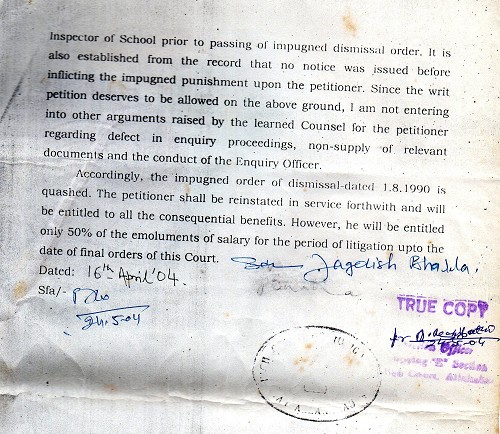 Inspector of School prior to passing of impugned dismissal order. It is
also established from the record that no notice was issued before
inflicting the impugned punishment upon the petitioner. Since the writ
petition deserves to be allowed on the above ground, I am not entering
into other arguments raised by the learned Counsel for the petitioner
regarding defect in enquiry proceedings, non-supply of relevant
documents and the conduct of the Enquiry Officer.
Accordingly, the impugned order of dismissal-dated 1.8.1990 is
quashed. The petitioner shall be reinstated in service forthwith and will
be entitled to all the consequential benefits. However, he will be entitled
only 50% of the emoluments of salary for the period of litigation upto the
date of final orders of this Court.
Jagdish Bhalla.
Dated: 16th April'04.
Sfa/-
24.5.04
TRUE COPY
Officer
"B" Section
Court, Allahabad